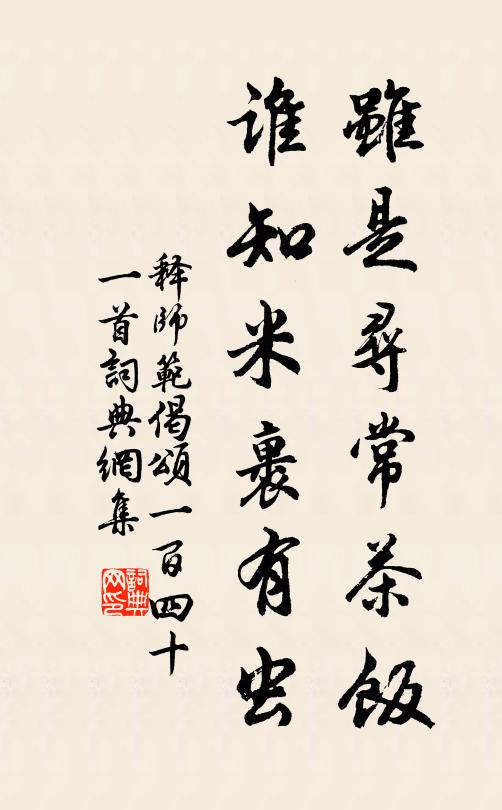 雖是尋常茶飯
谁知米裏有虫
释師範偈頌一百四十
一首詞典網集
詞典網印